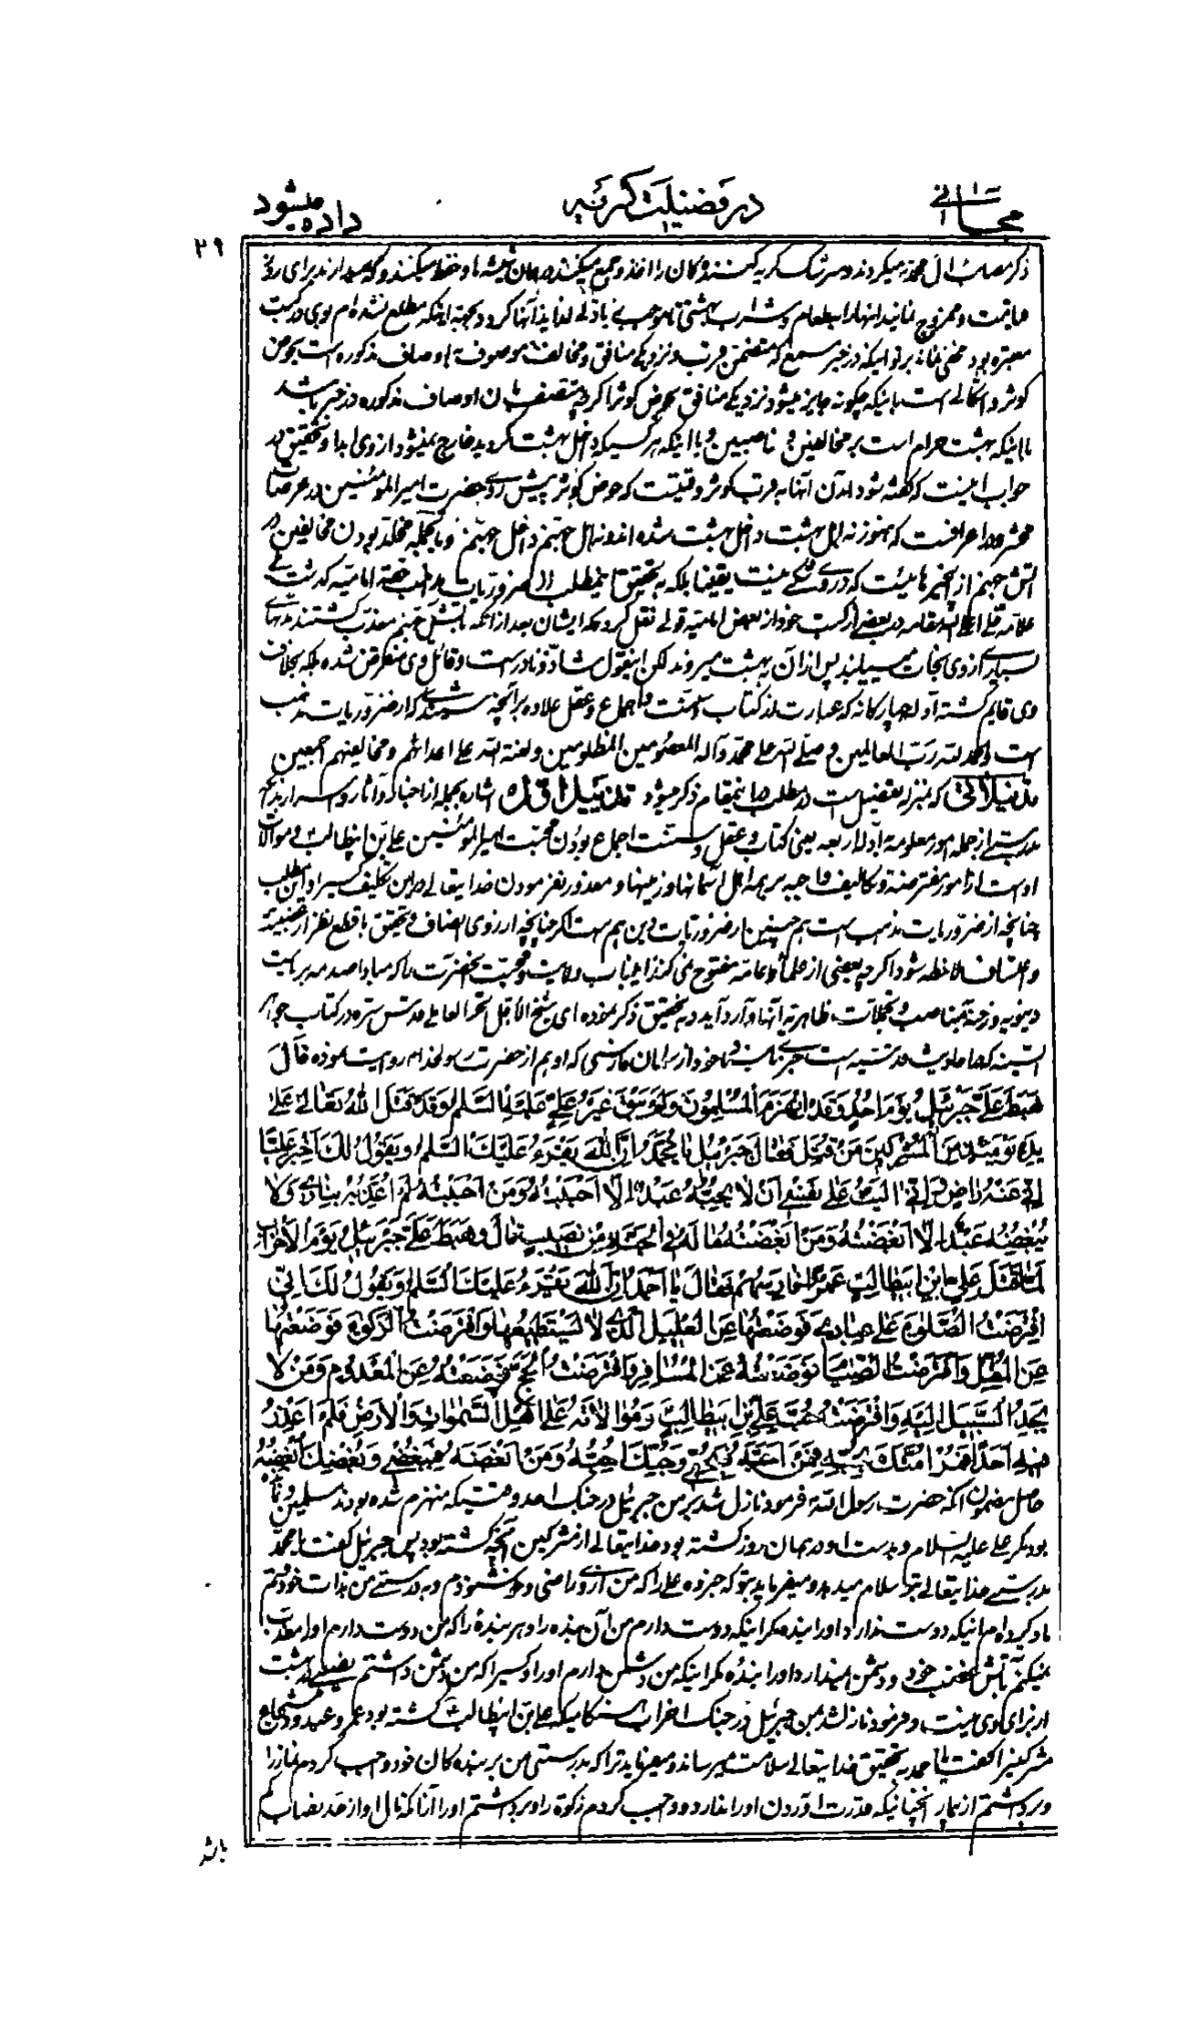 مجلس ثانی
در فضیلت گریه
داده میشود
۲۹
ذکر مصائب آل محمد میکردند و سرشک گریه کنندگان را اخذ و جمع میکنند در میان شیشه ها و حفظ میکنند و نگه میدارند برای روز
معتبره بود مخفی نماند بر تو اینکه در خبر مسمع که متضمن قرب و نزدیکی منافق و مخالف موصوف باوصاف مذکوره است بحوض
کوثر و اشکالی است باینکه چگونه جایز میشود نزدیکی منافق بحوض کوثر اگر چه متصف بآن اوصاف مذکوره در خبر باشد
با اینکه بهشت حرام است بر مخالفین و ناصبین و با اینکه هر کسیکه داخل بهشت گردید خارج نمیشود از وی ابدا و تحقیق در
جواب اینست که گفته شود آمدن آنها به قرب کوثر وقتیست که حوض کوثر پیش روی حضرت امیر المؤمنین در عرصات
محشر و در اعرافست که هنوز نه اهل بهشت داخل بهشت شده اند و نه اهل جهنم داخل جهنم و بالجمله مخلد بودن مخالفین در
آتش جهنم از چیزهائیست که در وی شکی نیست یقینا بلکه به تحقیق این مطلب از ضروریات مذهب حقه امامیه گردیده است
علامه حلی اعلی الله مقامه در بعضی از کتب خود از بعض امامیه قولی نقل کرده که ایشان بعد از آنکه بآتش جهنم معذب گشتند مدتهای
بسیاری از وی نجات مییابند پس از آن به بهشت میروند لکن اینقول شاذ و نادر است و قائل وی منقرض شده بلکه بخلاف
وی قایم گشته ادله چهارگانه که عبارتند از کتاب و سنت و اجماع و عقل علاوه بر آنچه شنیدی که از ضروریات مذهب
است و الحمد لله رب العالمین و صلی الله علی محمد و آله المعصومین المظلومین و لعنة الله علی اعدائهم و مخالفیهم اجمعین
تذییلاتی که بمنزله تفضیل است در مطلب در اینمقام ذکر میشود تذییل اول اشاره بجمله از اخبار و آثار و اسرار بدانکه
بدرستی از جمله امور معلومه بادله اربعه یعنی کتاب و عقل و سنت و اجماع بودن محبت امیر المؤمنین علی بن ابیطالب و موالات
اوست از امور مفترضه و تکالیف واجبه بر همه اهل آسمانها و زمینها و معذور نفرمودن خدایتعالی در این تکلیف کسیرا و این مطلب
چنانچه از ضروریات مذهب است هم چنین از ضروریات دین هم هست اگر چنانچه از روی انصاف و تحقیق با قطع نظر از عصبیت
و اعتساف ملاحظه شود اگر چه بعضی از علماء عامه مفتوح نمی کنند این باب ولایت و محبت آنحضرت را که مبادا صدمه بریاست
دنیویه و زخمه بمناصب و تجملات ظاهریه آنها وارد آید و به تحقیق ذکر نموده ای شیخ الاجل الحر العاملی قدس سره در کتاب جواهر
السنیه که در احادیث قدسیه است خبری باسناد خود از سلمان فارسی که او هم از حضرت رسولخدا روایت نموده قال
هبط علی جبرئیل یوم احد و قد انهزم المسلمون و لم یبق غیر علی علیه السلم و قد قتل الله تعالی علی
یده یومئذ من المشرکین من قتل فقال جبرئیل یا محمد ان الله یقرء علیک السلم و یقول لک اخبر علیا
انی عنه راض و انی آلیت علی نفسی ان لا یحبه عبد الا احببته و من احببته لم اعذبه بناری و لا
یبغضه عبد الا ابغضته و من ابغضته ما له فی الجنة من نصیب قال و هبط علی جبرئیل یوم الاحزاب
لما قتل علی بن ابیطالب عمرا فارسهم فقال یا احمد ان الله یقرء علیک السلم و یقول لک انی
افترضت الصلوة علی عبادی فوضعتها عن العلیل الذی لا یستطیعها و افترضت الزکوة فوضعتها
عن المقل و افترضت الصیام فوضعته عن المسافر و افترضت الحج فوضعته عن المعدوم و من لا
یجد السبیل الیه و افترضت حب علی بن ابیطالب و موالاته علی اهل السموات و الارض فلم اعذر
فیه احدا فمر امتک بحبه فمن احبه فبحبی و حبک احبه و من ابغضه فببغضی و بغضک ابغضه
حاصل مضمون آنکه حضرت رسول الله فرمود نازل شد بر من جبرئیل در جنگ احد وقتیکه منهزم شده بودند مسلمین و
بود مگر علی علیه السلام و بدست او در همان روز کشته بود خدایتعالی از مشرکین آنچه کشته بود پس جبرئیل گفت یا محمد
بدرستی خدایتعالی بتو سلام میدهد و میفرماید بتو که خبر ده علی را که من از وی راضی و خوشنودم و بدرستی من بذات خود قسم
یاد کرده ام اینکه دوست ندارد او را بنده مگر اینکه دوست دارم من آن بنده را و هر بندهٔ را که من دوست دارم او را معذب
نمیکنم بآتش غضب خود و دشمن نمیدارد او را بندهٔ مگر اینکه من دشمن دارم او را و کسیرا که من دشمن داشتم نصیبی از بهشت
از برای وی نیست و فرمود نازل شد بمن جبرئیل در جنگ احزاب هنگامیکه علی بن ابیطالب کشته بود عمرو عبدود شجاع
مشرکین را گفت یا احمد به تحقیق خدایتعالی سلامت میرساند و میفرماید ترا که بدرستی من بر بنده گان خود واجب کردم نماز را
و برداشتم از بیمار آنچنانیکه قدرت آوردن او را ندارد و واجب کردم زکوة را و برداشتم او را از آنکه مال او از حد نصاب کم
باشد